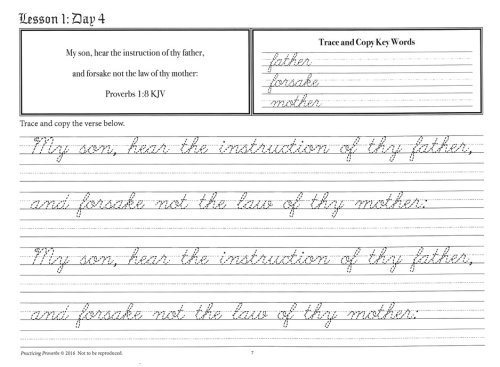 Lesson 1: Day 4
My son, hear the instruction of thy father,
and forsake not the law of thy mother:
Proverbs 1:8 KJV
Trace and Copy Key Words
father
forsake
mother
Trace and copy the verse below.
My son, hear the instruction of thy father,
and forsake not the law of thy mother:
My son, hear the instruction of thy father,
and forsake not the law of thy mother:
Practicing Proverbs © 2016 Not to be reproduced.
7